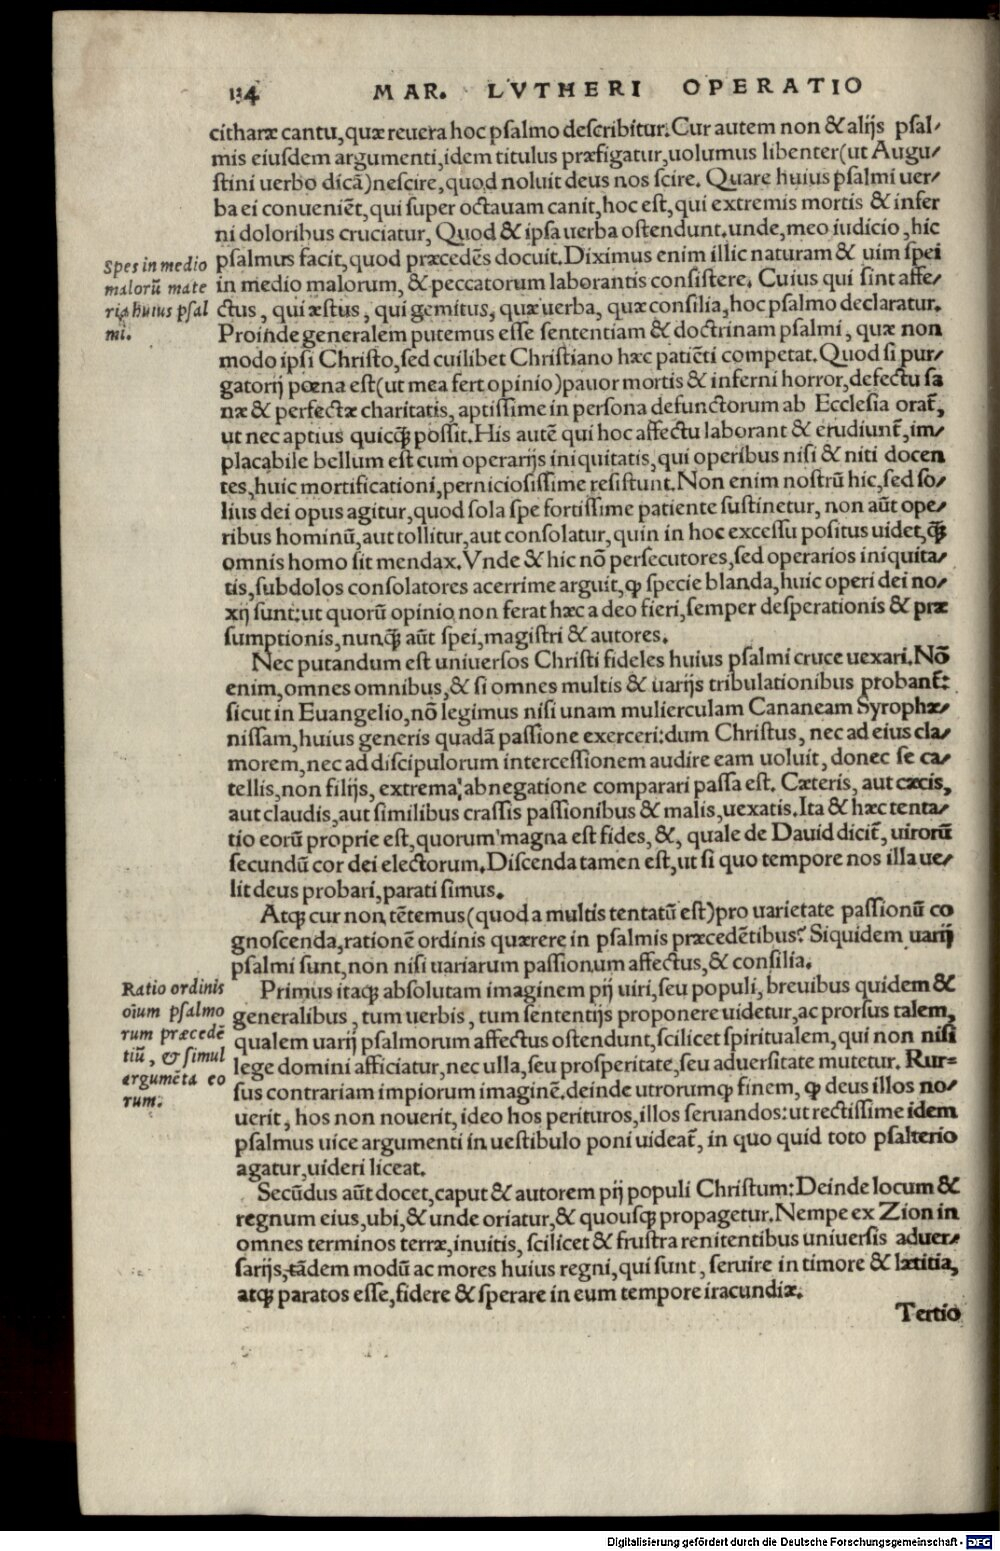 134 MAR. LVTHERI OPERATIO
citharæ cantu,quæ reuera hoc psalmo describitur.Cur autem non & alijs psal/
mis eiusdem argumenti,idem titulus præfigatur,uolumus libenter(ut Augu/
stini uerbo dicā)nescire,quod noluit deus nos scire. Quare huius psalmi uer/
ba ei conueniēt,qui super octauam canit,hoc est,qui extremis mortis & infer
ni doloribus cruciatur, Quod & ipsa uerba ostendunt.unde,meo iudicio,hic
psalmus facit,quod præcedēs docuit.Diximus enim illic naturam & uim spei
in medio malorum, & peccatorum laborantis consistere. Cuius qui sint affe/
ctus, qui æstus, qui gemitus, quæ uerba, quæ consilia,hoc psalmo declaratur.
Spes in medio
malorū mate
ria huius psal
mi.
Proinde generalem putemus esse sententiam & doctrinam psalmi, quæ non
modo ipsi Christo,sed cuilibet Christiano hæc patiēti competat.Quod si pur/
gatorij pœna est(ut mea fert opinio)pauor mortis & inferni horror,defectu sa
næ & perfectæ charitatis, aptissime in persona defunctorum ab Ecclesia orat̄,
ut nec aptius quicq̄ȝ possit.His autē qui hoc affectu laborant & erudiunt̄,im/
placabile bellum est cum operarijs iniquitatis,qui operibus nisi & niti docen
tes,huic mortificationi,perniciosissime resistunt.Non enim nostrū hic,sed so/
lius dei opus agitur,quod sola spe fortissime patiente sustinetur, non aūt ope/
ribus hominū,aut tollitur,aut consolatur,quin in hoc excessu positus uidet,q̄ȝ
omnis homo sit mendax.Vnde & hic nō persecutores,sed operarios iniquita/
tis,subdolos consolatores acerrime arguit,ꝙ specie blanda,huic operi dei no/
xij sunt:ut quorū opinio non ferat hæc a deo fieri,semper desperationis & præ
sumptionis,nunq̄ȝ aūt spei,magistri & autores.
Nec putandum est uniuersos Christi fideles huius psalmi cruce uexari.Nō
enim,omnes omnibus,& si omnes multis & uarijs tribulationibus probant̄:
sicut in Euangelio,nō legimus nisi unam mulierculam Cananeam Syrophæ/
nissam,huius generis quadā passione exerceri:dum Christus, nec ad eius cla/
morem,nec ad discipulorum intercessionem audire eam uoluit, donec se ca/
tellis,non filijs, extrema abnegatione comparari passa est. Cæteris, aut cæcis,
aut claudis,aut similibus crassis passionibus & malis,uexatis.Ita & hæc tenta/
tio eorū proprie est,quorum magna est fides, &, quale de Dauid dicit̄, uirorū
secundū cor dei electorum.Discenda tamen est,ut si quo tempore nos illa ue/
lit deus probari,parati simus.
Atqȝ cur non tētemus(quod a multis tentatū est)pro uarietate passionū co
gnoscenda,rationē ordinis quærere in psalmis præcedētibus? Siquidem uarij
psalmi sunt,non nisi uariarum passionum affectus,& consilia.
Primus itaqȝ absolutam imaginem pij uiri,seu populi, breuibus quidem &
generalibus, tum uerbis, tum sententijs proponere uidetur,ac prorsus talem,
qualem uarij psalmorum affectus ostendunt,scilicet spiritualem,qui non nisi
lege domini afficiatur,nec ulla,seu prosperitate,seu aduersitate mutetur. Rur=
sus contrariam impiorum imaginē.deinde utrorumqȝ finem, ꝙ deus illos no/
uerit, hos non nouerit, ideo hos perituros,illos seruandos:ut rectissime idem
psalmus uice argumenti in uestibulo poni uideat̄, in quo quid toto psalterio
agatur,uideri liceat.
Ratio ordinis
oīum psalmo
rum præcedē
tiū, & simul
argumēta eo
rum.
Secūdus aūt docet,caput & autorem pij populi Christum:Deinde locum &
regnum eius,ubi,& unde oriatur,& quousqȝ propagetur.Nempe ex Zion in
omnes terminos terræ,inuitis, scilicet & frustra renitentibus uniuersis aduer/
sarijs,tādem modū ac mores huius regni,qui sunt, seruire in timore & lætitia,
atqȝ paratos esse,fidere & sperare in eum tempore iracundiæ.
Tertio
Digitalisierung gefördert durch die Deutsche Forschungsgemeinschaft - DFG